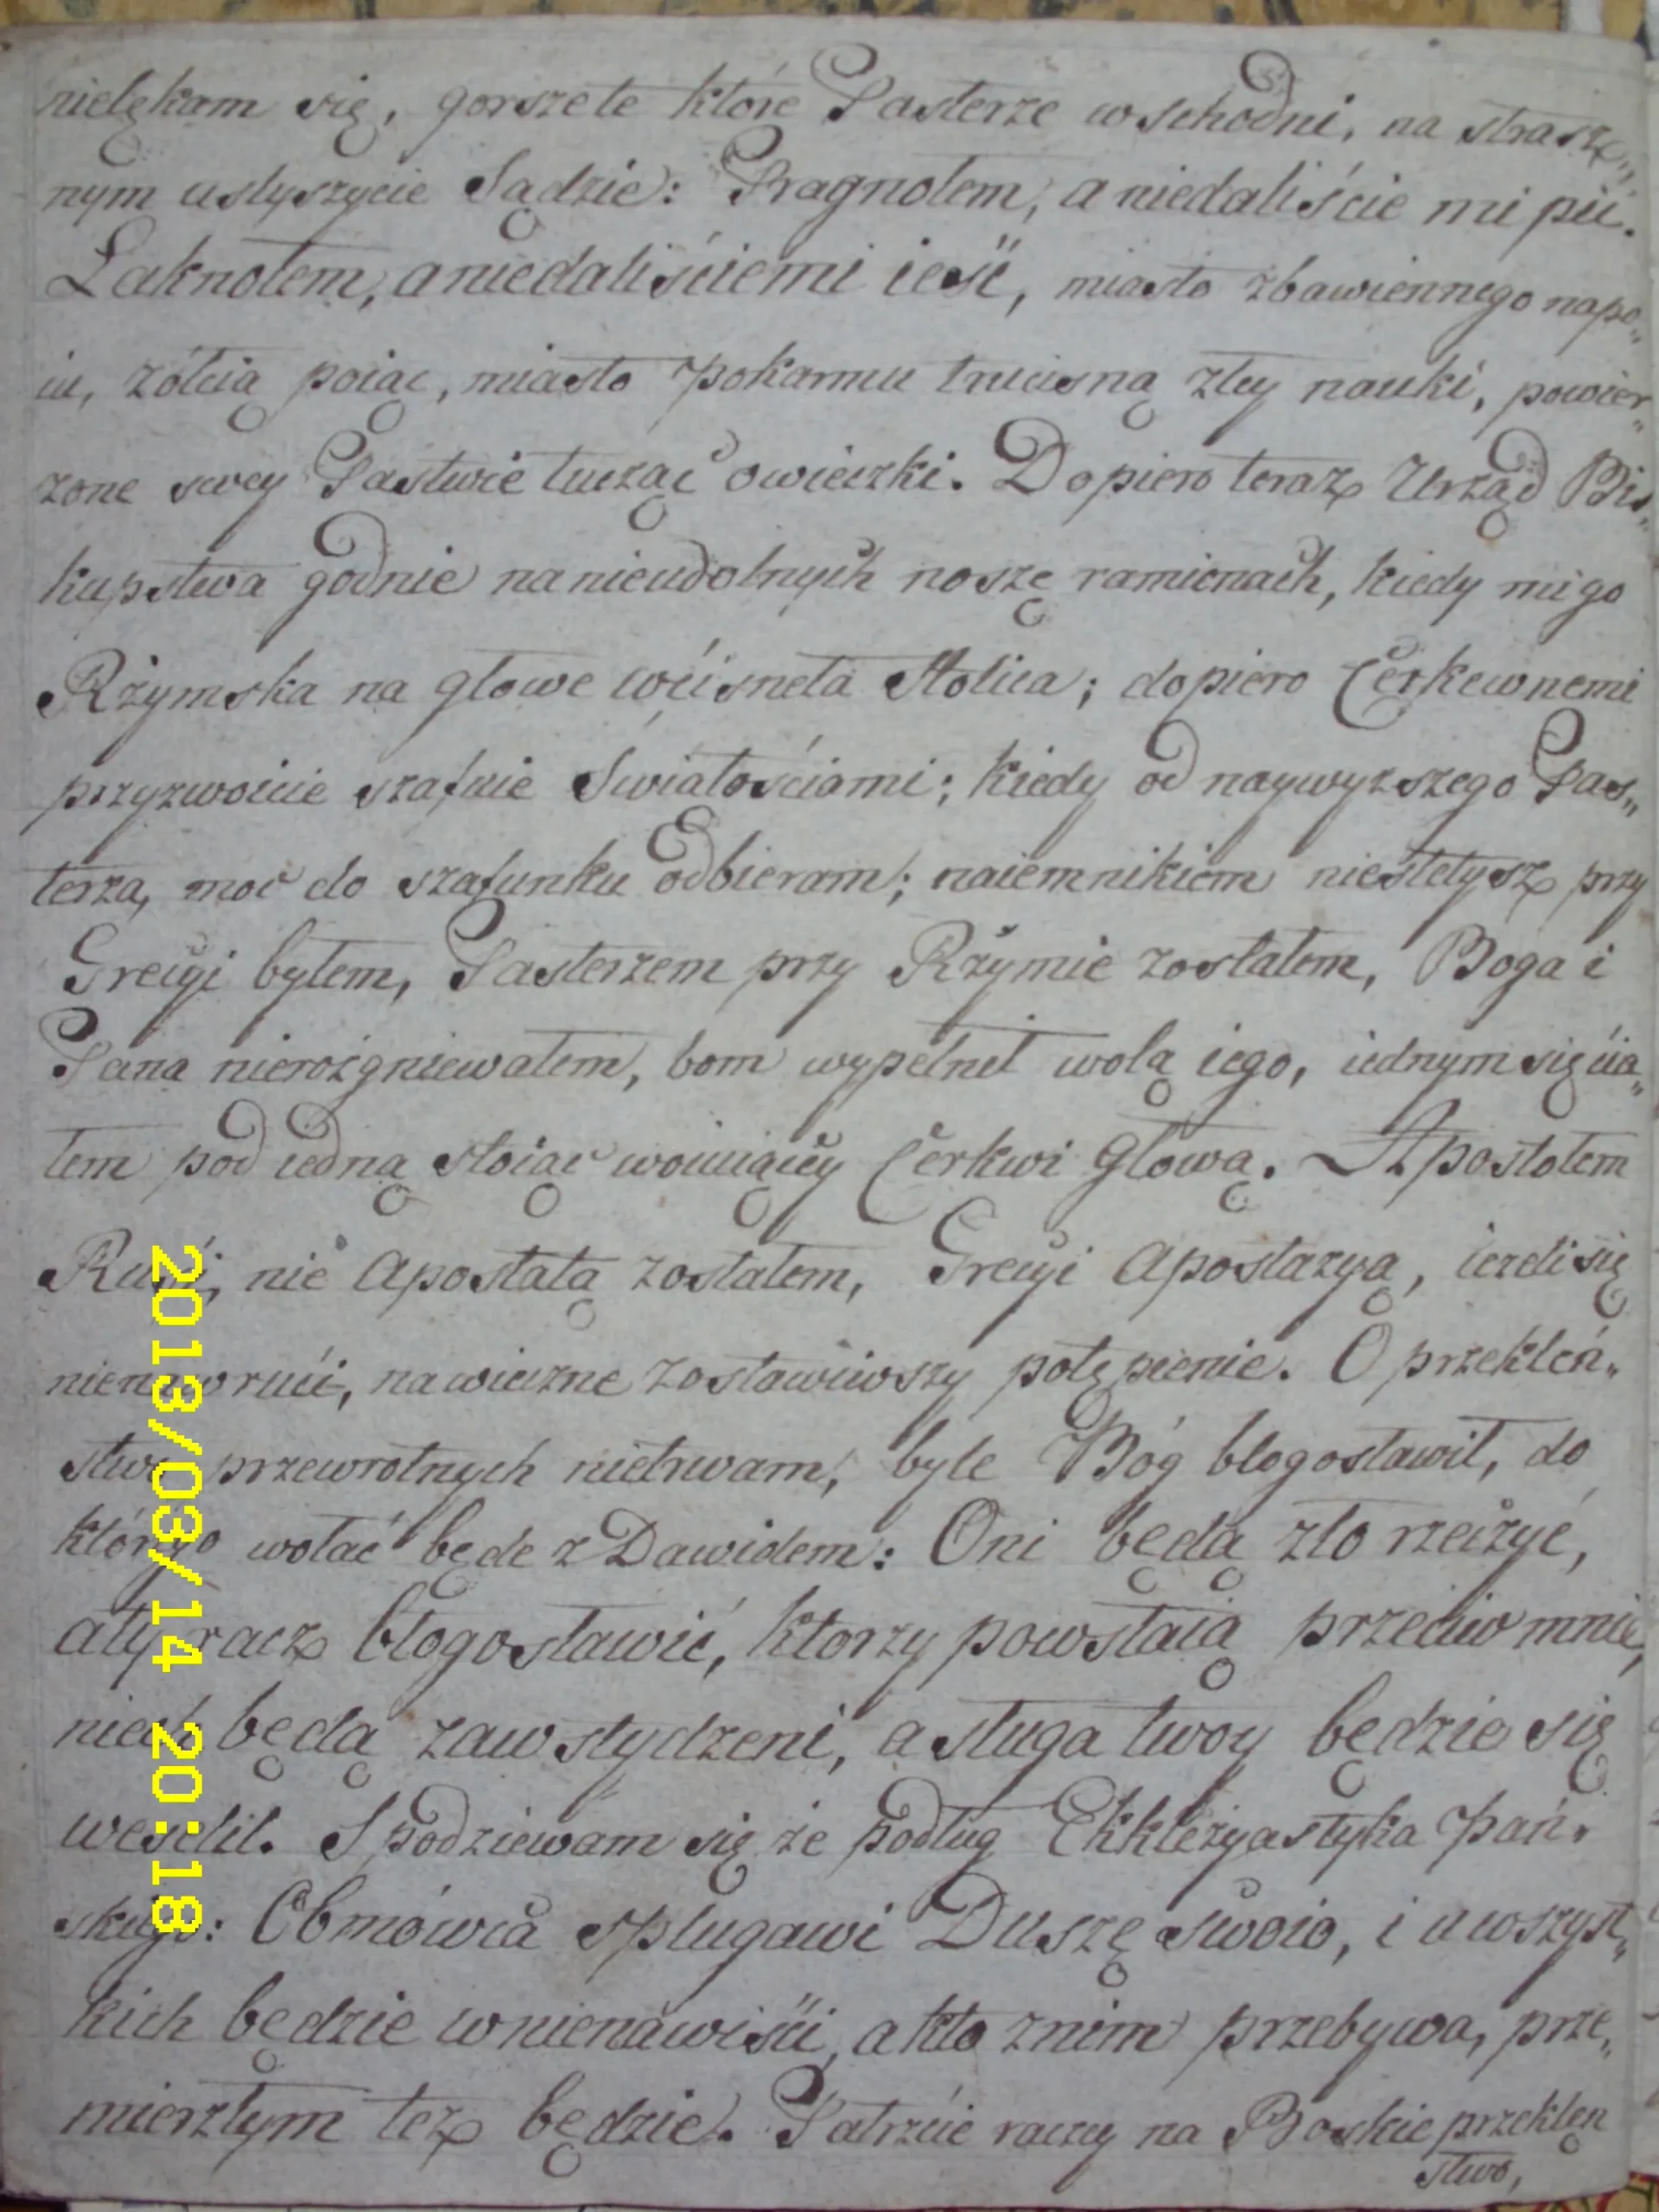 nielękam się, gorsze te które Pasterze wschodni, na strasz„
nym usłyszycie Sądzie: Pragnołem, a niedaliście mi pić.
Łaknołem, a niedaliściemi ieść, miasto zbawiennego napo„
iu, żółcią poiąc, miasto pokarmu trucisną złey nauki, powier„
zone swey Pastwie tucząc owieczki. Dopiero teraz Urząd Bis„
kupstwa godnie na nieudolnych noszę ramionach, kiedy mi go
Rżymska na głowe wćisneła Stolica; dopiero Cerkewnemi
przyzwoicie szafuie Światościami; kiedy od naywyzszego Pas„
terza, moc do szafunku odbieram; naiemnikiem niestetysz przy
Grecyi byłem, Pasterzem przy Rżymie zostałem, Boga i
Pana nierożgniewałem, bom wypełnił wolą iego, iednym się ćia„
łem pod iedną stoiąc woiuiącey Cerkwi Głową. Apostołem
Ruśi, nie Apostatą zostałem, Grecyi Apostazyą, ieżeli się
nienawrući, na wieczne zostawiwszy potępienie. O przekleń„
stwo przewrotnych nietrwam, byle Bóg błogosławił, do
którego wołać będe z Dawidem: Oni będą zło rzeczyć,
a ty racz błogosławić, ktorzy powstaią przeciw mnie,
niech będą zawstydzeni, a sługa twoy będzie się
weselił. Spodziewam się że podług Ekklezyastyka Pań„
skiego: Obmówca spługawi Duszę swoio, i u wszyst„
kich będzie w nienawiści, a kto z nim przebywa, prze„
mierzłym też będzie. Patrzcie raczey na Boskie przeklen
stwo,
2013/03/14 20:18